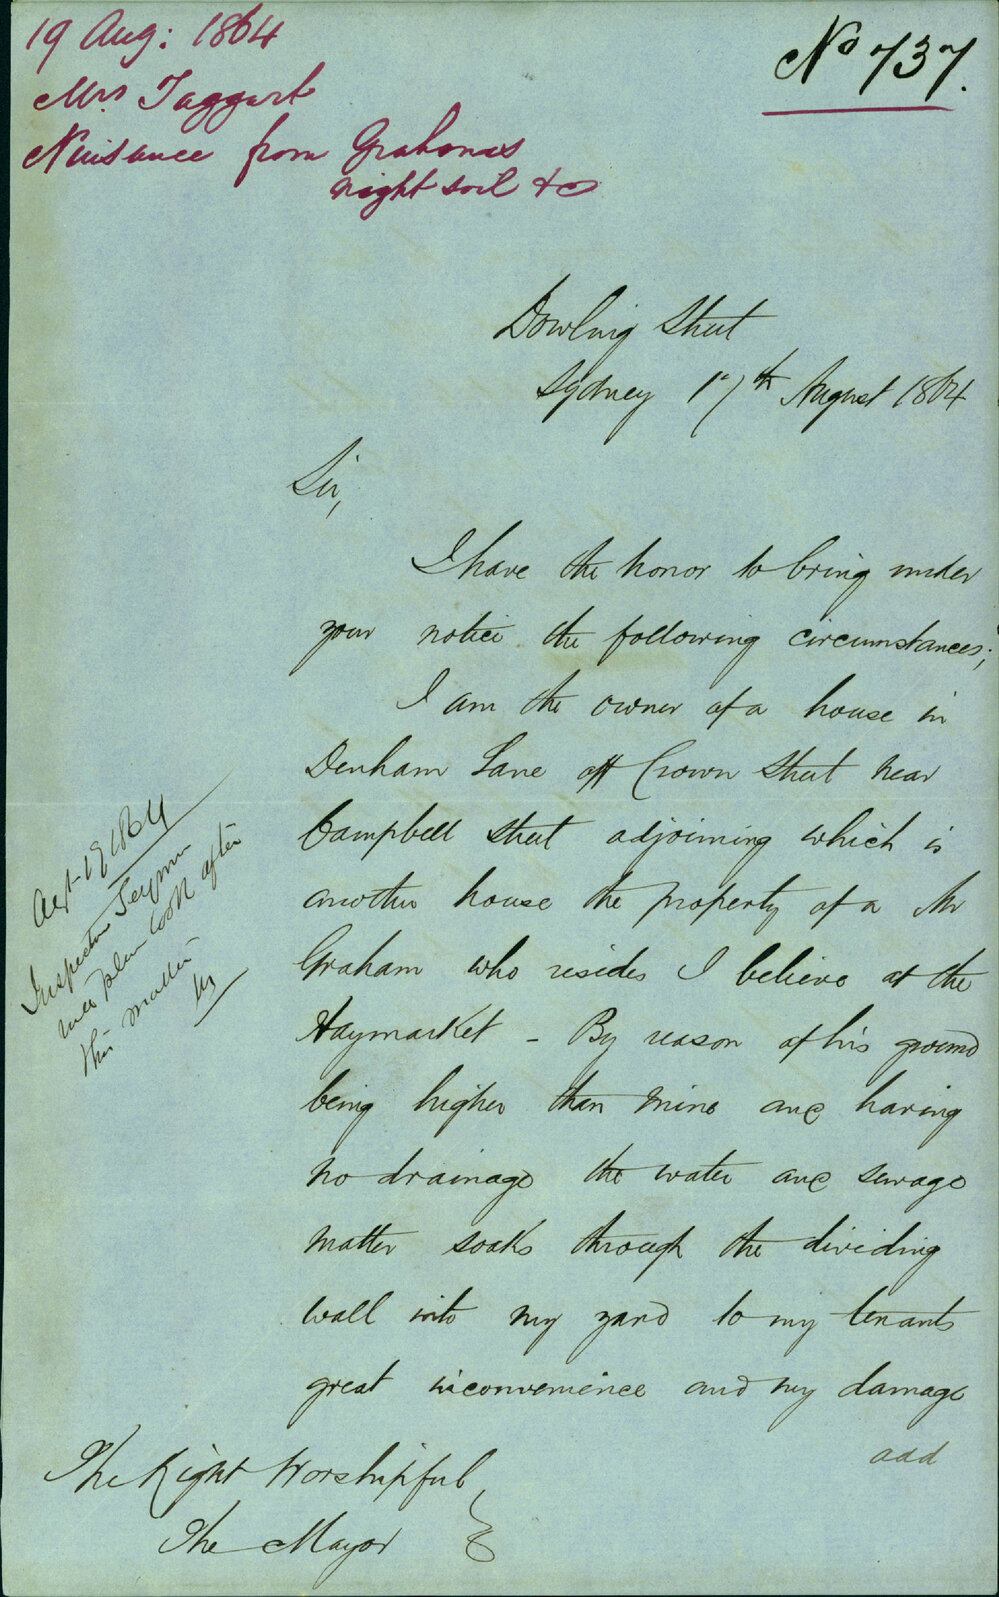 19 Aug: 1864
Mrs Taggart
Nuisance from Grahames
night soil &c
No 737.
Dowling Street
Sydney 17th August 1864
Sir,
I have the honor to bring under
your notice the following circumstances;
I am the owner of a house in
Denham Lane off Crown Street near
Campbell Street adjoining which is
another house the property of a Mr
Graham who resides I believe at the
Haymarket - By reason of his ground
being higher than mine and having
no drainage the water and sewage
matter soaks through the dividing
wall into my yard to my tenants
great inconvenience and my damage
add
The Right Worshipful
The Mayor
19 1864
Inspector Seymour
look after
this matter